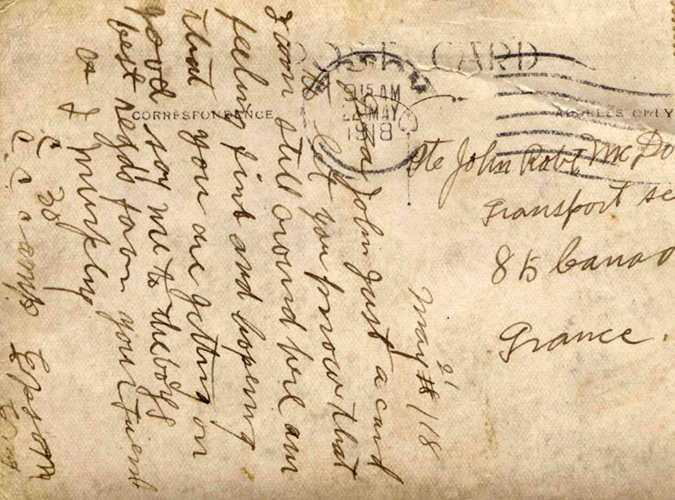 POST CARD
CORRESPONDENCE
ADDRESS ONLY
9 15 AM
22 MAY
1918
May 21/18
John Just a card
to let you know that
I am still around here am
feeling fine and hoping
that you are getting on
good say me to the boys
best regds from your friend
C.C. Camp Epsom
Pte John Robt Mc Do
Transport se
85 Canad
France.